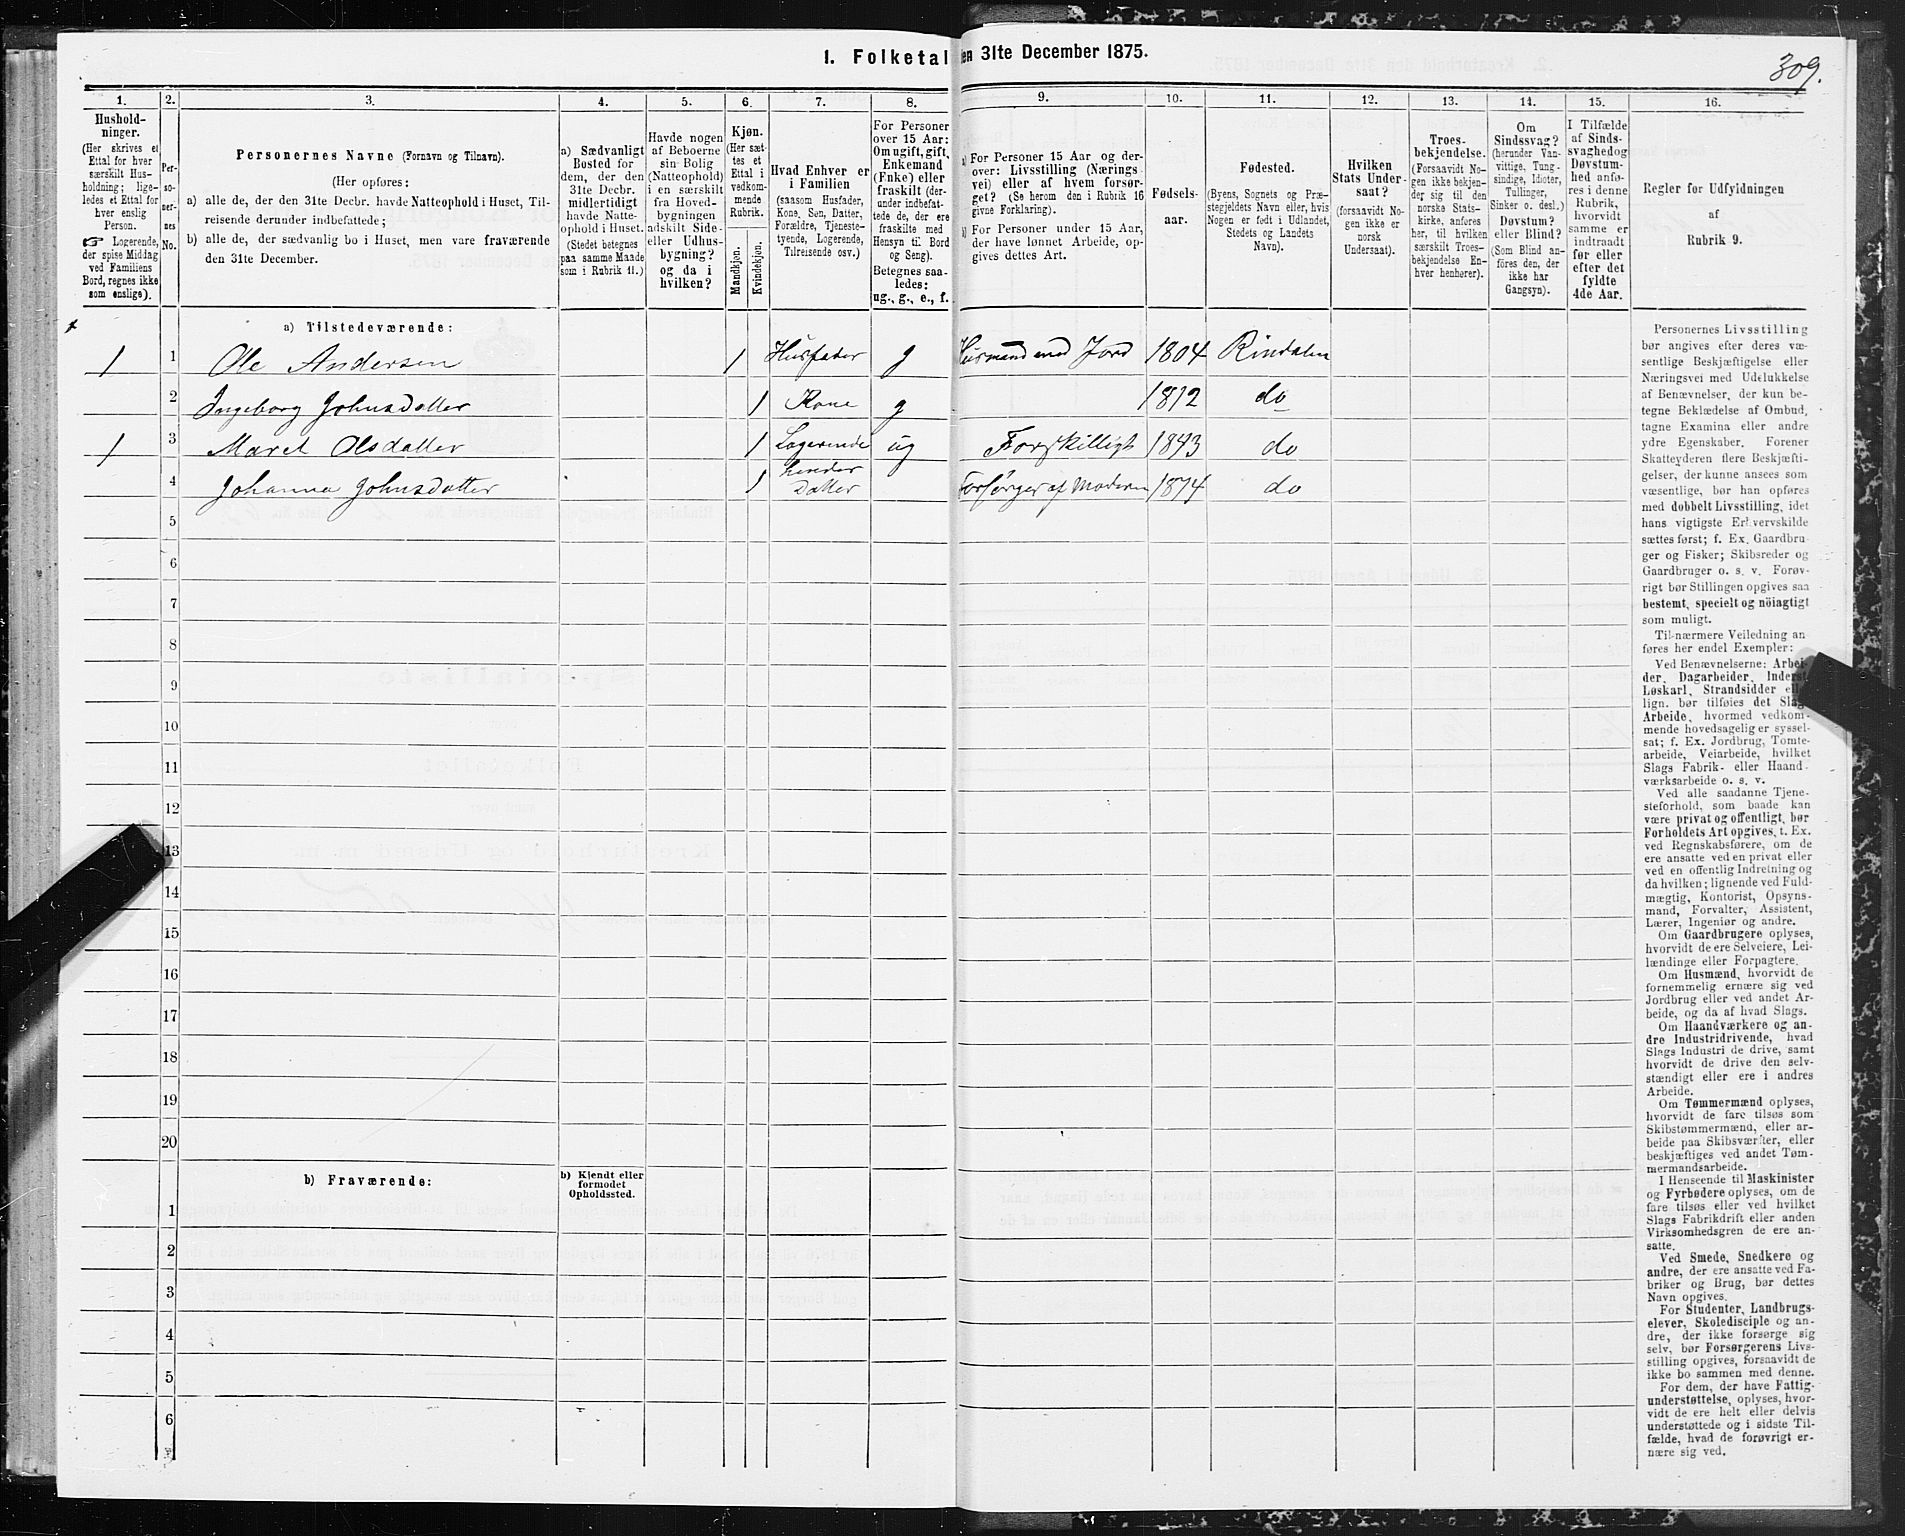 1. Folketal den 31te December 1875.
309.
1.
2.
3.
4.
5.
6.
7.
8.
9.
10.
11.
12.
13.
14.
15.
16.
Hushold-
ninger.
(Her skrives et
Ettal for hver
særskilt Hus-
holdning; lige-
ledes et Ettal for
hver enslig
Person.
☞ Logerende,
der spise Middag
ved Familiens
Bord, regnes ikke
som enslige).
Per-
so-
ner-
nes
No.
Personernes Navne (Fornavn og Tilnavn).
(Her opføres:
a) alle de, der den 31te Decbr. havde Natteophold i Huset, Til-
reisende derunder indbefattede;
b) alle de, der sædvanlig bo i Huset, men vare fraværende
den 31te December.
a) Sædvanligt
Bosted for
dem, der den
31te Decbr.
midlertidigt
havde Natte-
ophold i Huset.
(Stedet betegnes
paa samme Maade
som i Rubrik 11.)
Havde nogen
af Beboerne
sin Bolig
(Natteophold)
i en særskilt
fra Hoved-
bygningen
adskilt Side-
eller Udhus-
bygning?
og da i
hvilken?
Kjøn.
(Her sæt-
tes et
Ettal i
vedkom-
mende
Rubrik.
Mandkjøn.
Kvindekjøn.
Hvad Enhver er
i Familien
(saasom Husfader,
Kone, Søn, Datter,
Forældre, Tjeneste-
tyende, Logerende,
Tilreisende osv.)
For Personer
over 15 Aar:
Om ugift, gift,
Enkemand
(Enke) eller
fraskilt (der-
under indbefat-
tede de, der ere
fraskilte med
Hensyn til Bord
og Seng).
Betegnes saa-
ledes:
ug., g., e., f.
a) For Personer 15 Aar og der-
over: Livsstilling (Nærings-
vei) eller af hvem forsør-
get? (Se herom den i Rubrik 16
givne Forklaring).
b) For Personer under 15 Aar,
der have lønnet Arbeide, op-
gives dettes Art.
Fødsels-
aar.
Fødested.
(Byens, Sognets og Præ-
stegjeldets Navn eller, hvis
Nogen er født i Udlandet,
Stedets og Landets
Navn).
Hvilken
Stats Under-
saat?
(forsaavidt No-
gen ikke er
norsk
Undersaat).
Troes-
bekjendelse.
(Forsaavidt No-
gen ikke bekjen-
der sig til den
norske Stats-
kirke, anføres
her, til hvilken
særskilt Troes-
bekjendelse En-
hver henhører).
Om
Sindssvag?
(herunder Van-
vittige, Tung-
sindige, Idioter,
Tullinger,
Sinker o. desl.)
Døvstum?
eller Blind?
(Som Blind an-
føres den, der
ikke har
Gangsyn).
I Tilfælde
af Sinds-
svaghed og
Døvstum-
hed anfø-
res i denne
Rubrik,
hvorvidt
samme er
indtraadt
før eller
efter det
fyldte
4de Aar.
Regler for Udfyldningen
af
Rubrik 9.
a) Tilstedeværende:
1 1 Ole Andersen 1 Husfader g Husmand med Jord 1804 Rindalen
2 Ingeborg Johnsdatter 1 Kone g 1812 do
1 3 Maret Olsdatter 1 Logerende ug Forskilligt 1843 do
4 Johanna Johnsdatter 1 hendes Datter Forsørges af Moderen 1874 do
5
6
7
8
9
10
11
12
13
14
15
16
17
18
19
20
b) Fraværende:
b) Kjendt eller
formodet
Opholdssted.
1
2
3
4
5
6
Personernes Livsstilling
bør angives efter deres væ-
sentlige Beskjæftigelse eller
Næringsvei med Udelukkelse
af Benævnelser, der kun be-
tegne Beklædelse af Ombud,
tagne Examina eller andre
ydre Egenskaber. Forener
Skatteyderen flere Beskjæfti-
gelser, der kunne ansees som
væsentlige, bør han opføres
med dobbelt Livsstilling, idet
hans vigtigste Erhvervskilde
sættes først; f. Ex. Gaardbru-
ger og Fisker; Skibsreder og
Gaardbruger o. s. v. Forøv-
rigt bør Stillingen opgives saa
bestemt, specielt og nöiagtigt
som muligt.
Til nærmere Veiledning an-
føres her endel Exempler:
Ved Benævnelserne: Arbei-
der, Dagarbeider, Inderst,
Løskarl, Strandsidder eller
lign. bør tilføies det Slags
Arbeide, hvormed vedkom-
mende hovedsagelig er syssel-
sat; f. Ex. Jordbrug, Tomte-
arbeide, Veiarbeide, hvilket
Slags Fabrik- eller Haand-
værksarbeide o. s. v.
Ved alle saadanne Tjene-
steforhold, som baade kan
være privat og offentligt, bør
Forholdets Art opgives, t. Ex.
ved Regnskabsførere, om de
ere ansatte ved en privat eller
ved en offentlig Indretning og
da hvilken; lignende ved Fuld-
mægtig, Kontorist, Opsyns-
mand, Forvalter, Assistent,
Lærer, Ingeniør og andre.
Om Gaardbrugere oplyses,
hvorvidt de ere Selveiere, Lei-
lændinge eller Forpagtere.
Om Husmænd, hvorvidt de
fornemmelig ernære sig ved
Jordbrug eller ved andet Ar-
beide, og da af hvad Slags.
Om Haandværkere og an-
dre Industridrivende, hvad
Slags Industri de drive, samt
hvorvidt de drive den selv-
stændigt eller ere i andres
Arbeide.
Om Tømmermænd oplyses,
hvorvidt de fare tilsøs som
Skibstømmermænd, eller ar-
beide paa Skibsværfter, eller
beskjæftiges ved andet Tøm-
mermandsarbeide.
I Henseende til Maskinister
og Fyrbødere oplyses, om de
fare tilsøs eller ved hvilket
Slags Fabrikdrift eller anden
Virksomhedsgren de ere an-
satte.
Ved Smede, Snedkere og
andre, der ere ansatte ved Fa-
briker og Brug, bør dettes
Navn opgives.
For Studenter, Landbrugs-
elever, Skoledisciple og an-
dre, der ikke forsørge sig
selv, bør Forsørgerens Livs-
stilling opgives, forsaavidt de
ikke bo sammen med denne.
For dem, der have Fattig-
understøttelse, oplyses, hvor-
vidt de ere helt eller delvis
understøttede og i sidste Til-
fælde, hvad de forøvrigt er-
nære sig ved.